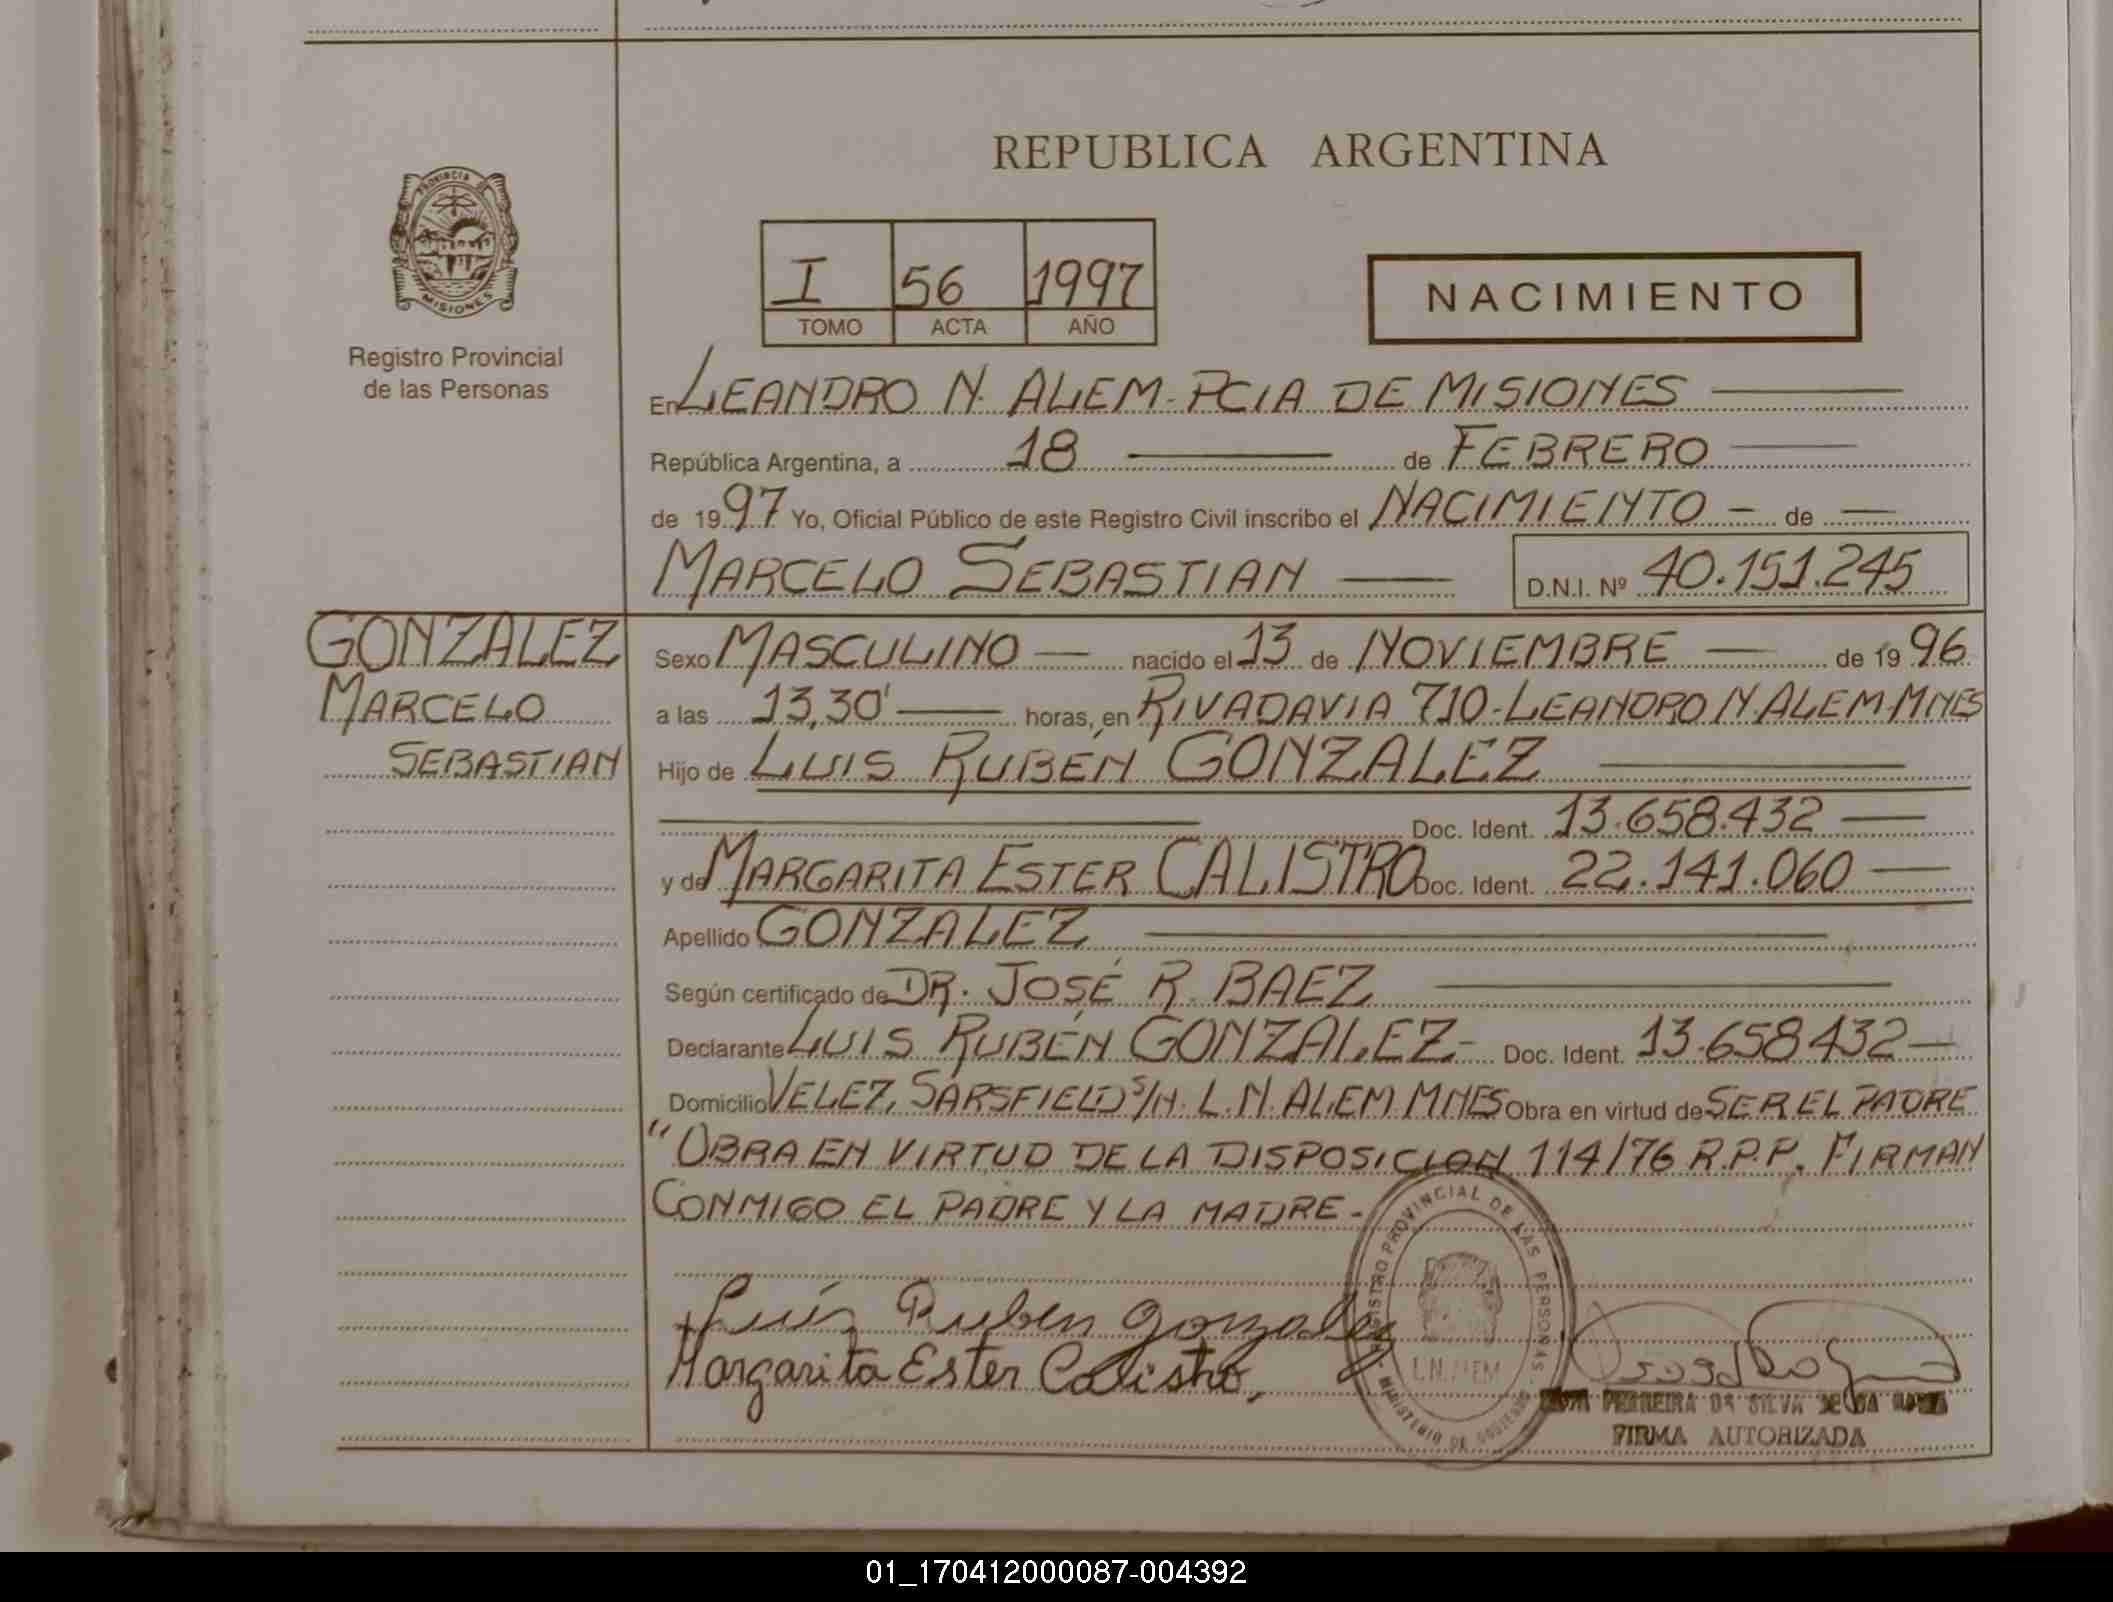 REPUBLICA ARGENTINA
PROVINCIA DE
MISIONES
Registro Provincial
de las Personas
I 56 1997
TOMO ACTA AÑO
NACIMIENTO
En LEANDRO N. ALEM - PCIA DE MISIONES
República Argentina, a 18 de FEBRERO
de 1997 Yo, Oficial Público de este Registro Civil inscribo el NACIMIENTO - de
MARCELO SEBASTIAN D.N.I. Nº 40.151.245
GONZALEZ
MARCELO
SEBASTIAN
Sexo MASCULINO nacido el 13 de NOVIEMBRE de 1996
a las 13,30' horas, en RIVADAVIA 710-LEANDRO N. ALEM-MNES
Hijo de LUIS RUBÉN GONZALEZ
Doc. Ident. 13.658.432
y de MARGARITA ESTER CALISTRO Doc. Ident. 22.141.060
Apellido GONZALEZ
Según certificado de DR. JOSÉ R. BAEZ
Declarante LUIS RUBÉN GONZALEZ- Doc. Ident. 13.658.432
Domicilio VELEZ, SARSFIELD S/N. L.N. ALEM. MNES Obra en virtud de SER EL PADRE
"OBRA EN VIRTUD DE LA DISPOSICION 114/76 R.P.P. FIRMAN
CONMIGO EL PADRE Y LA MADRE.-
REGISTRO PROVINCIAL DE LAS PERSONAS
L.N. ALEM
MINISTERIO DE GOBIERNO
Luis Ruben Gonzalez
Margarita Ester Calistro,
FERREIRA DA SILVA DE
FIRMA AUTORIZADA
01_170412000087-004392